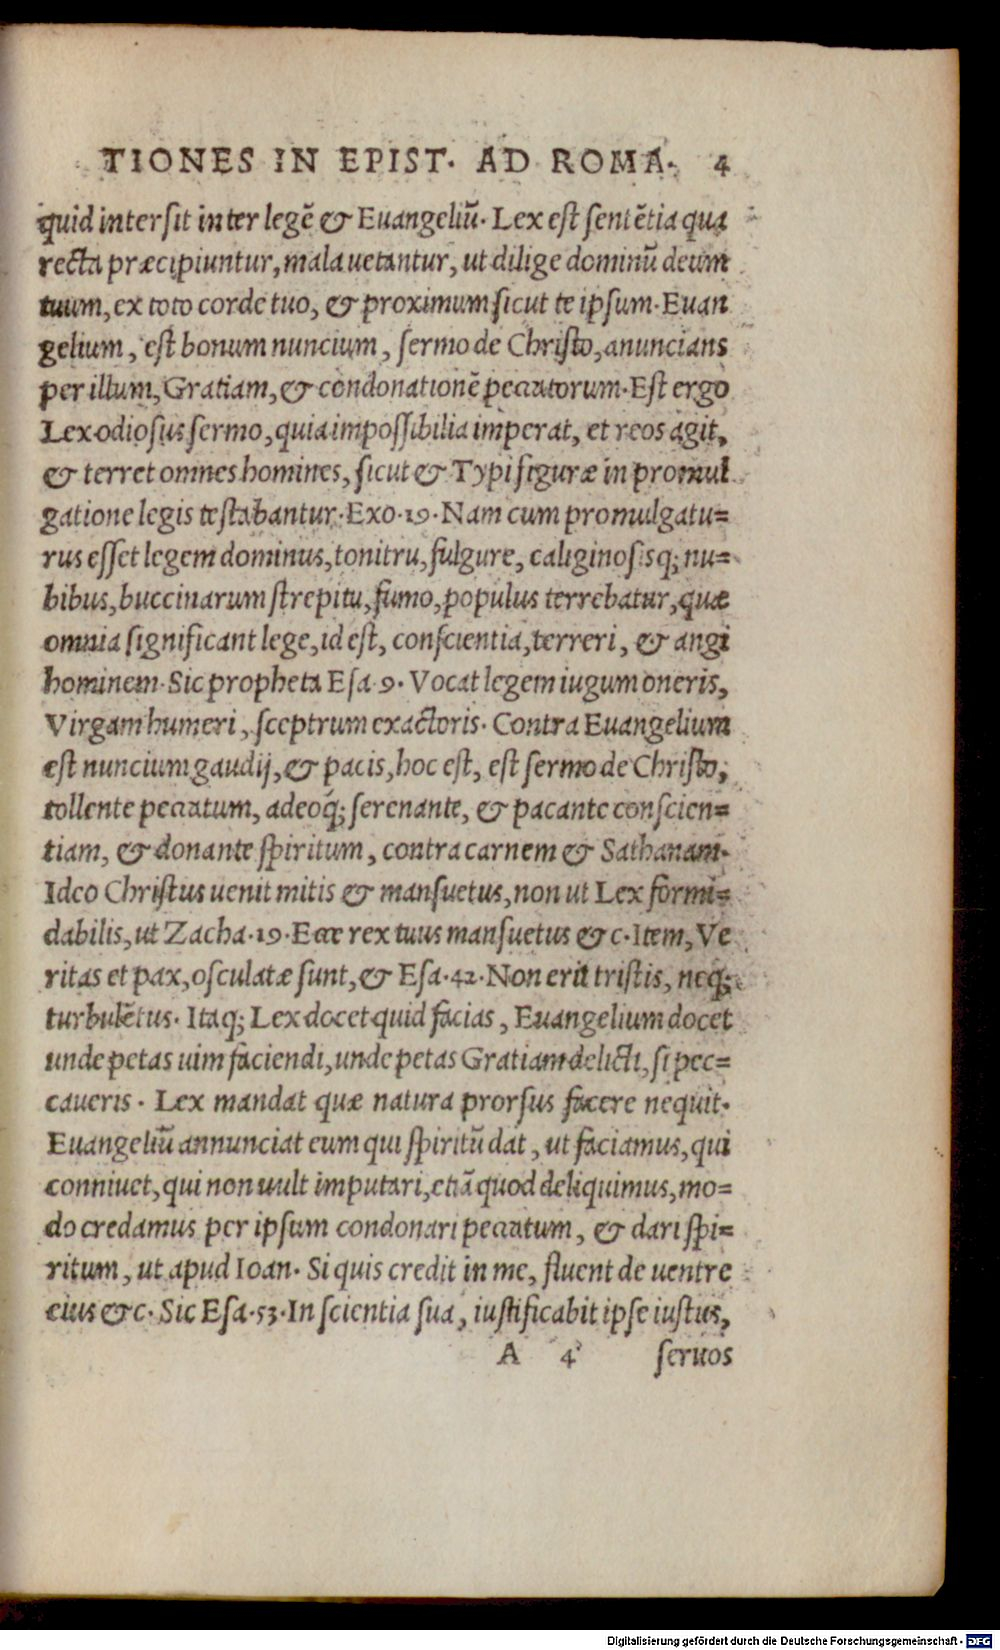 TIONES IN EPIST. AD ROMA. 4
quid intersit inter legē & Euangeliū. Lex est sentētia qua
recta præcipiuntur, mala uetantur, ut dilige dominū deum
tuum, ex toto corde tuo, & proximum sicut te ipsum. Euan
gelium, est bonum nuncium, sermo de Christo, anuncians
per illum, Gratiam, & condonationē peccatorum. Est ergo
Lex odiosus sermo, quia impossibilia imperat, et reos agit,
& terret omnes homines, sicut & Typi figuræ in promul
gatione legis testabantur. Exo. 19. Nam cum promulgatu=
rus esset legem dominus, tonitru, fulgure, caliginosisq; nu=
bibus, buccinarum strepitu, fumo, populus terrebatur, quæ
omnia significant lege, id est, conscientia, terreri, & angi
hominem. Sic propheta Esa. 9. Vocat legem iugum oneris,
Virgam humeri, sceptrum exactoris. Contra Euangelium
est nuncium gaudij, & pacis, hoc est, est sermo de Christo,
tollente peccatum, adeoq; serenante, & pacante conscien=
tiam, & donante spiritum, contra carnem & Sathanam.
Ideo Christus uenit mitis & mansuetus, non ut Lex formi=
dabilis, ut Zacha. 19. Ecce rex tuus mansuetus &c. Item, Ve
ritas et pax, osculatæ sunt, & Esa. 42. Non erit tristis, neq;
turbulētus. Itaq; Lex docet quid facias, Euangelium docet
unde petas uim faciendi, unde petas Gratiam delicti, si pec=
caueris. Lex mandat quæ natura prorsus facere nequit.
Euangeliū annunciat eum qui spiritū dat, ut faciamus, qui
conniuet, qui non uult imputari, etiā quod deliquimus, mo=
do credamus per ipsum condonari peccatum, & dari spi=
ritum, ut apud Ioan. Si quis credit in me, fluent de uentre
eius &c. Sic Esa. 53. In scientia sua, iustificabit ipse iustus,
A 4 seruos
Digitalisierung gefördert durch die Deutsche Forschungsgemeinschaft - DFG